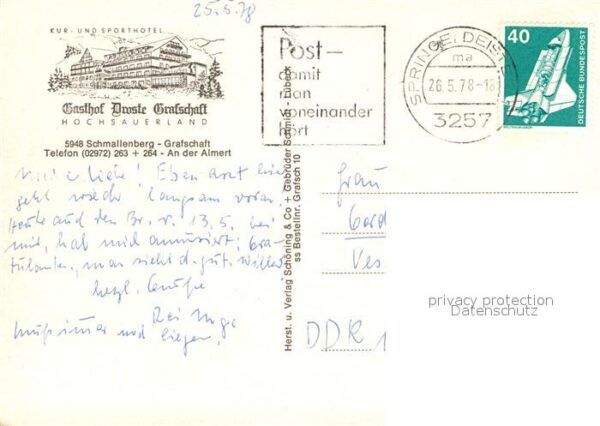 25.5.78
KUR- UND SPORTHOTEL
Gasthof Droste Grafschaft
HOCHSAUERLAND
5948 Schmallenberg - Grafschaft
Telefon (02972) 263 + 264 - An der Almert
Post-
damit
man
voneinander
hört
SPRINGE, DEIST
ma
26.5.78-18
3257
40
DEUTSCHE BUNDESPOST
Herst. u. Verlag Schöning & Co + Gebrüder Schmidt - Lübeck
ss Bestellnr. Grafsch 10
Liebe! Eben
geht langsam voran.
Heute auf den Br. v. 13.5. bei
mir, hab mich amüsiert:
man sieht d. gut. Willen
herzl.
muß immer noch liegen.
Frau
Ves
DDR 1
privacy protection
Datenschutz